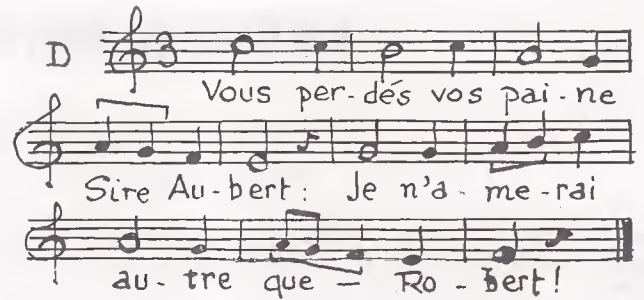 D 3
Vous per-dés vos pai-ne
Sire Au-bert: Je n'a-me-rai
au-tre que - Ro-bert!